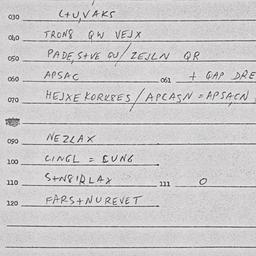 030 L+U,VAKS
040 TRON8 QW VEJX
050 PADE,S+VE QU/ZEJLN QR
060 APSAC 061 + GAP DRE
070 HEJXEKORKSES/APCASN=APSACN
090 NEZLAX
100 LINGL = LUNG
110 S+N8IRLAX 111 O
120 FARS+NUREVET